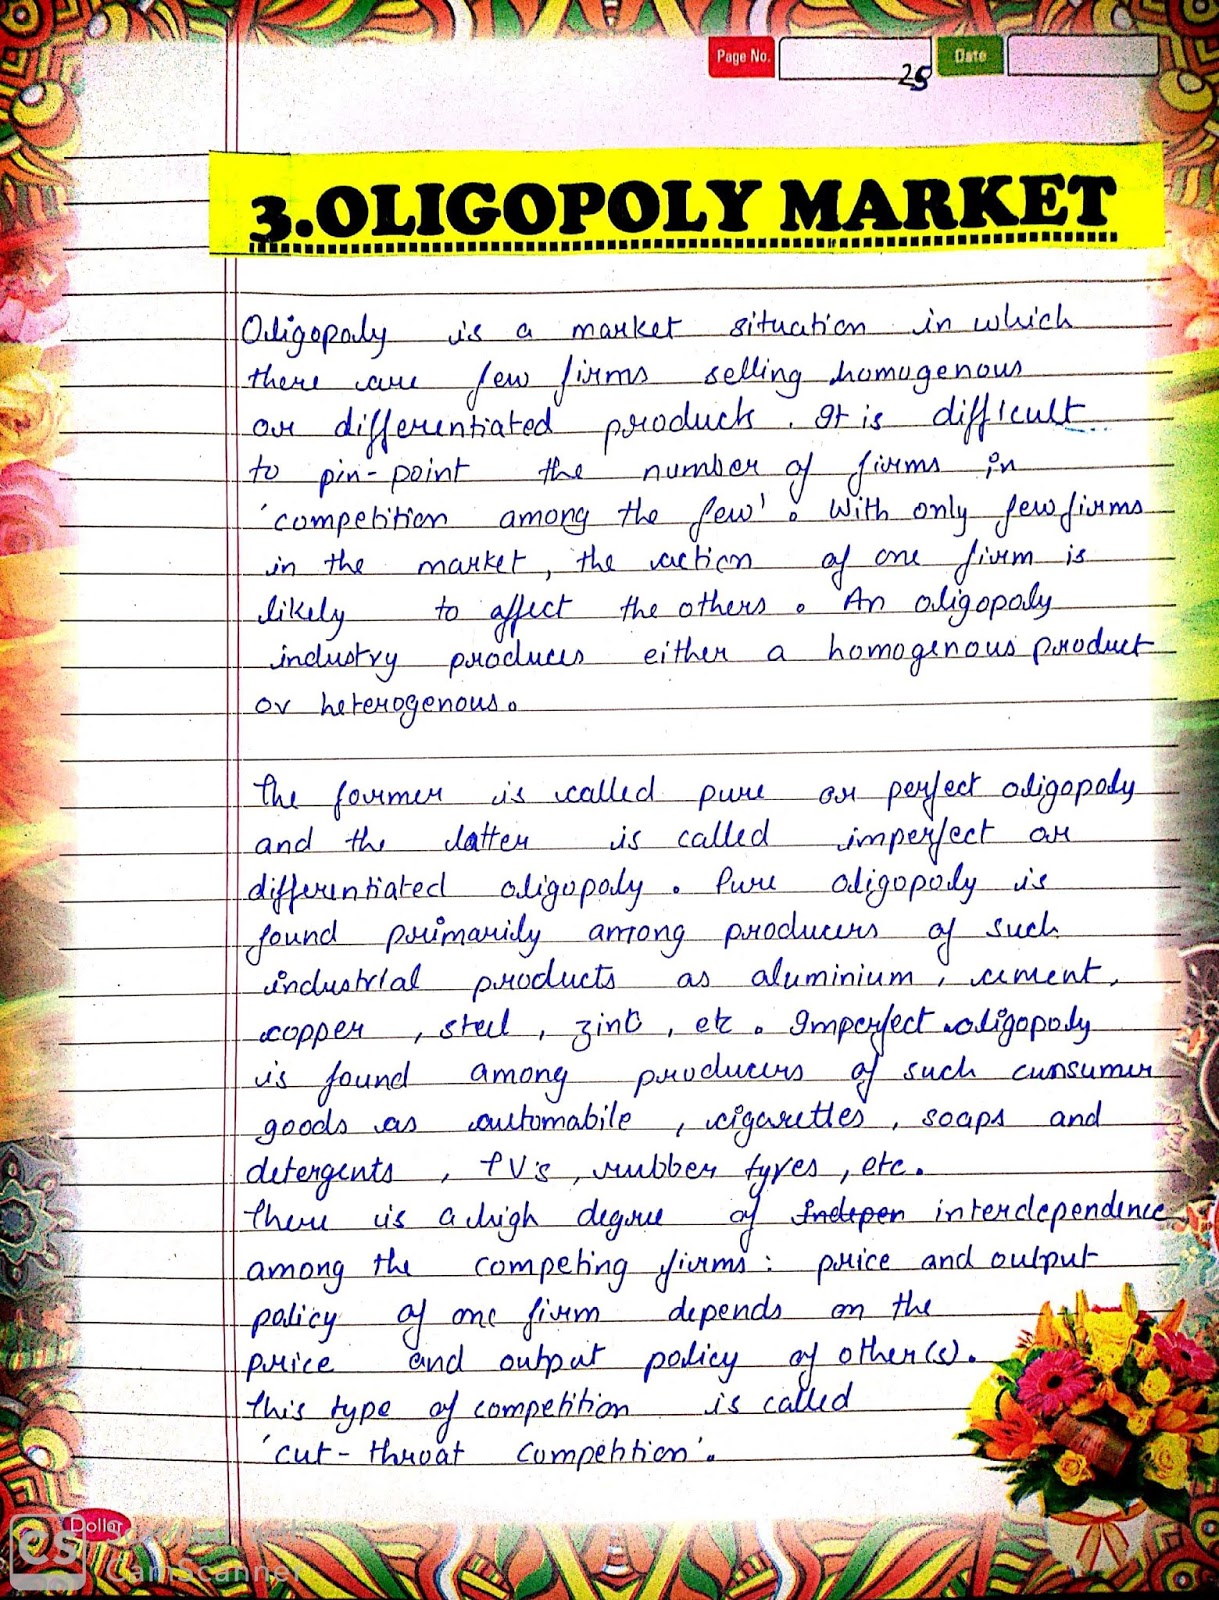 Page No. 25 Date
3.OLIGOPOLY MARKET
Oligopoly is a market situation in which
there are few firms selling homogenous
or differentiated products. It is difficult
to pin-point the number of firms in
'competition among the few'. With only few firms
in the market, the action of one firm is
likely to affect the others. An oligopoly
industry produces either a homogenous product
or heterogenous.
The former is called pure or perfect oligopoly
and the latter is called imperfect or
differentiated oligopoly. Pure oligopoly is
found primarily among producers of such
industrial products as aluminium, cement,
copper, steel, zinc, etc. Imperfect oligopoly
is found among producers of such cunsumer
goods as automabile, cigarettes, soaps and
detergents, TV's, rubber tyres, etc.
There is a high degree of Indepen interdependence
among the competing firms: price and output
policy of one firm depends on the
price and output policy of other(s).
This type of competition is called
'cut-throat competition'.
Dollar
CS CamScanner